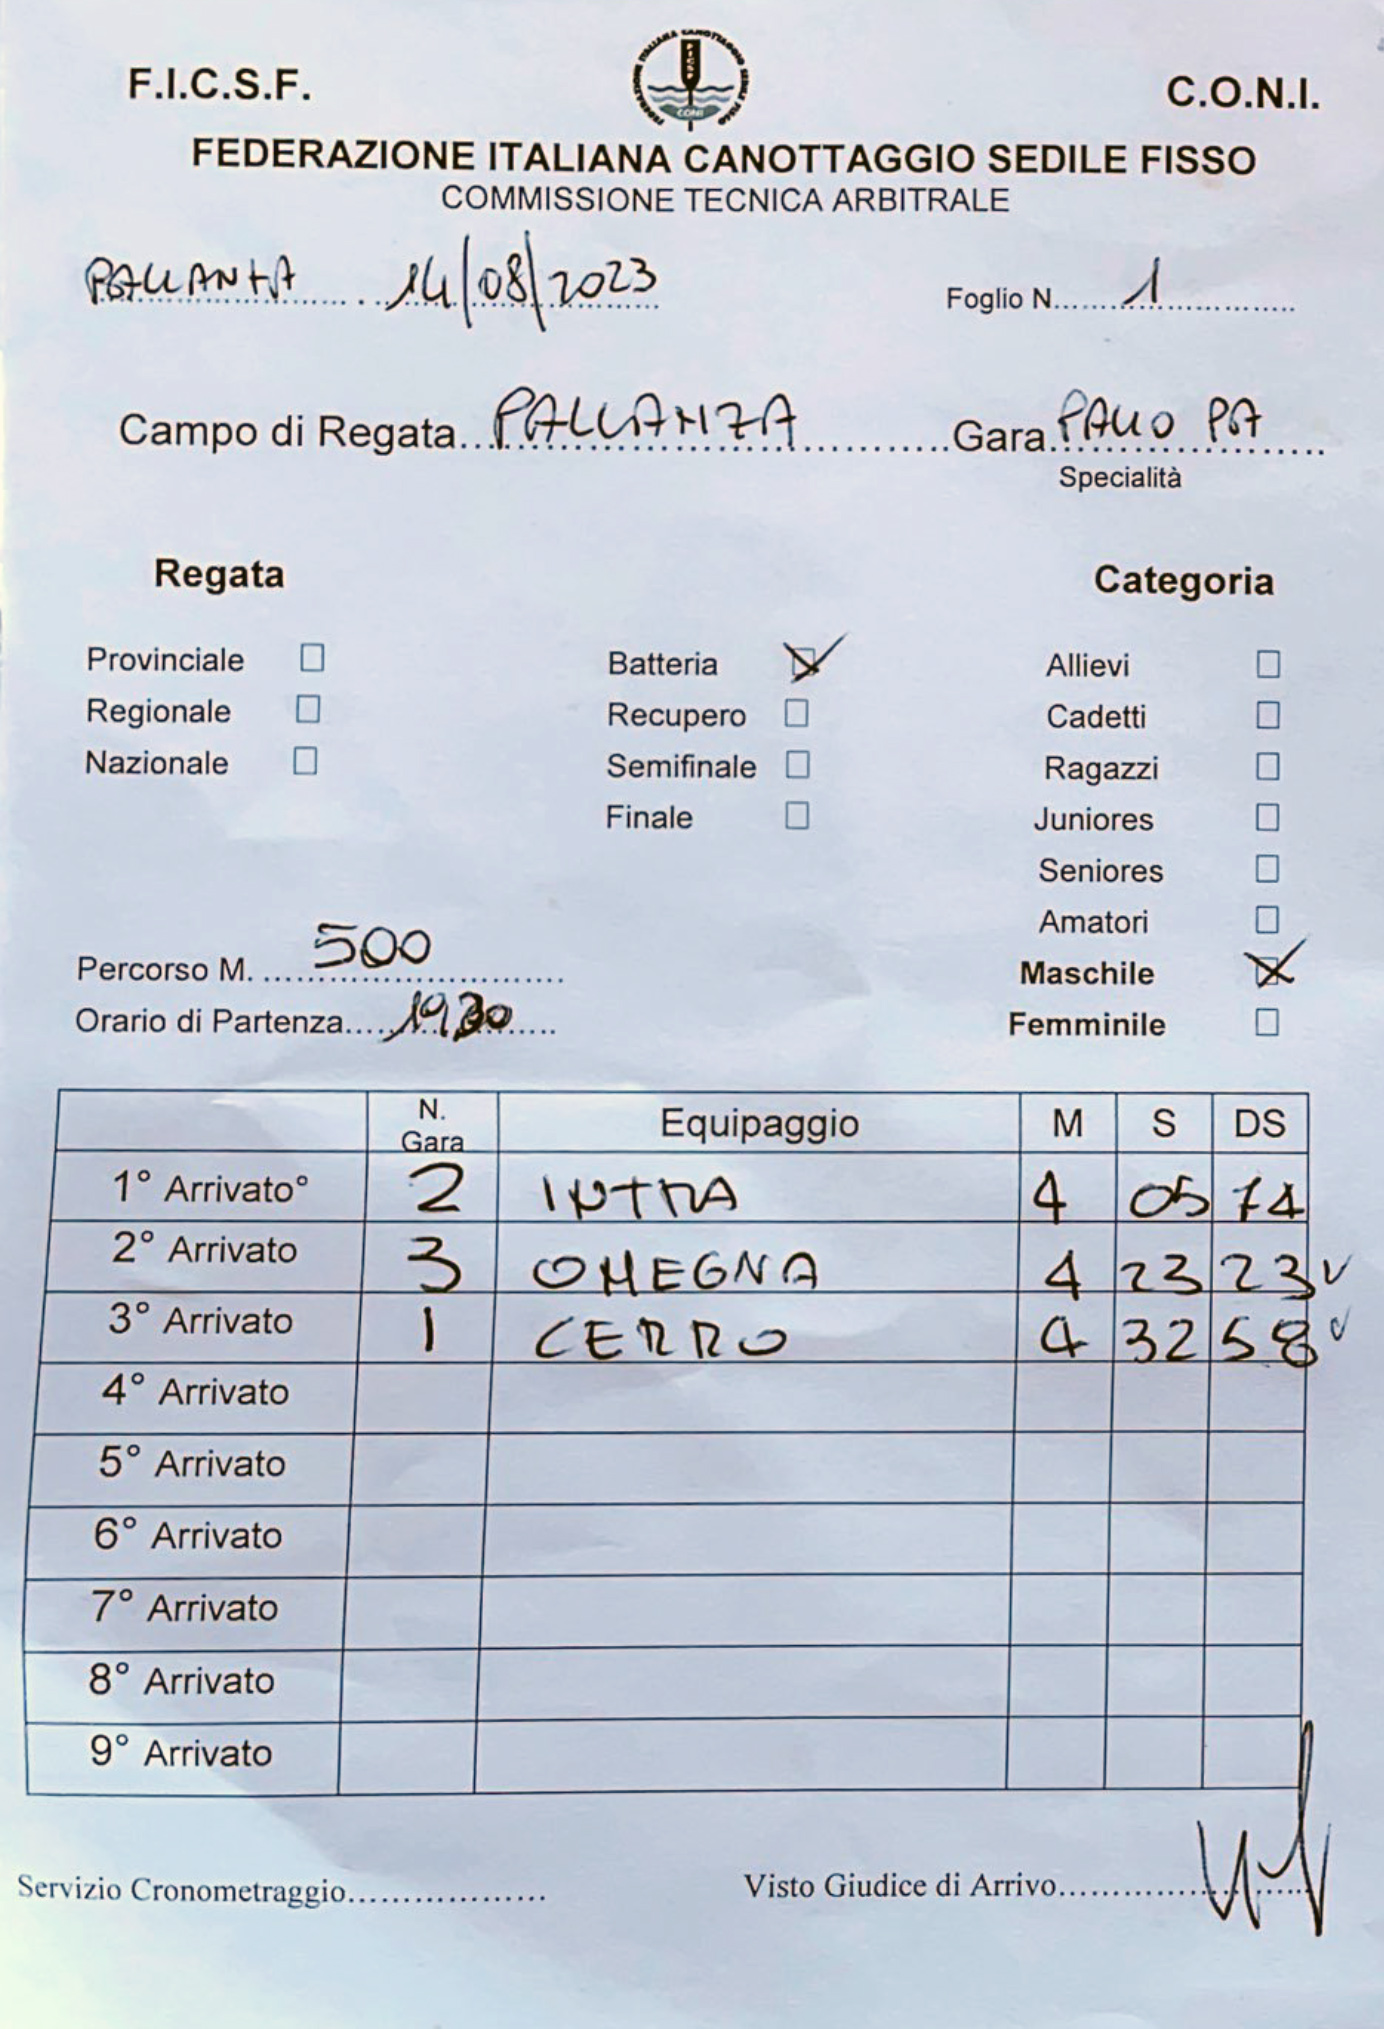 F.I.C.S.F.
FEDERAZIONE ITALIANA CANOTTAGGIO SEDILE FISSO
FICSF
CONI
C.O.N.I.
FEDERAZIONE ITALIANA CANOTTAGGIO SEDILE FISSO
COMMISSIONE TECNICA ARBITRALE
PALLANZA 14/08/2023 Foglio N. 1
Campo di Regata PALLANZA Gara PALIO
Specialità
Regata Categoria
Provinciale ☐ Batteria ☒ Allievi ☐
Regionale ☐ Recupero ☐ Cadetti ☐
Nazionale ☐ Semifinale ☐ Ragazzi ☐
Finale ☐ Juniores ☐
Seniores ☐
Amatori ☐
Percorso M. 500 Maschile ☒
Orario di Partenza 1930 Femminile ☐
N. Gara Equipaggio M S DS
1° Arrivato° 2 INTRA 4 05 74
2° Arrivato 3 OMEGNA 4 23 23 v
3° Arrivato 1 CERRO 4 32 58 v
4° Arrivato
5° Arrivato
6° Arrivato
7° Arrivato
8° Arrivato
9° Arrivato
Servizio Cronometraggio Visto Giudice di Arrivo